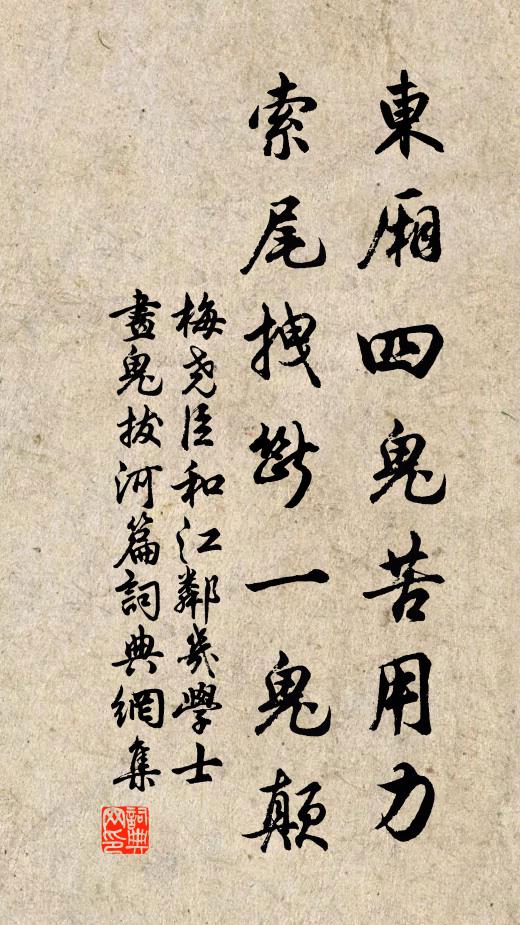 東厢四鬼苦用力
索尾拽斷一鬼顛
梅堯臣和江鄰幾學士
畫鬼拔河篇詞典網集
詞典
网印